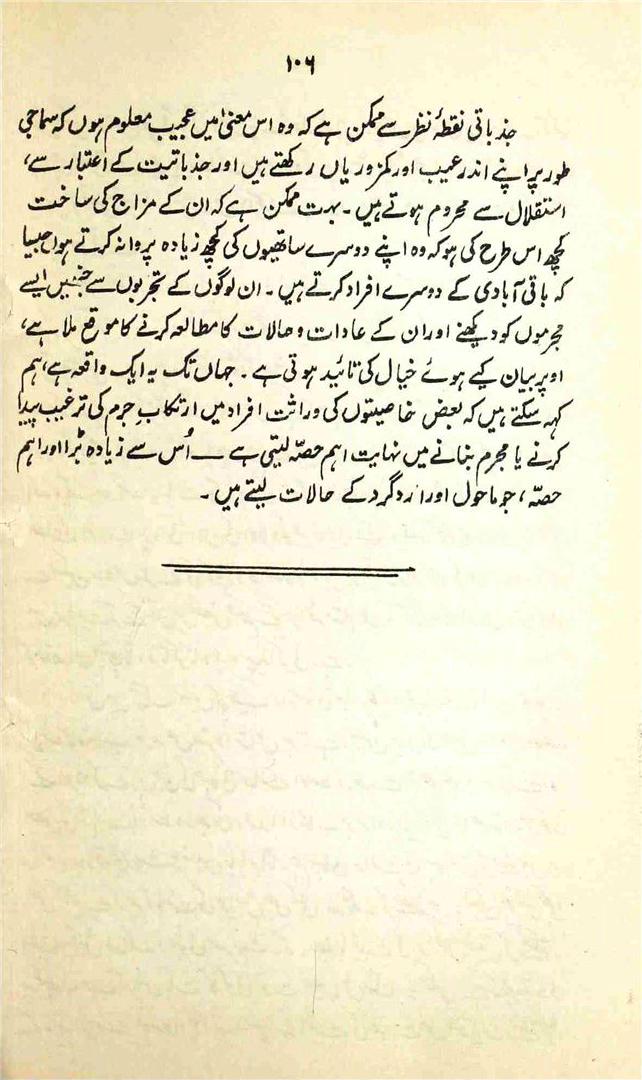 ۱۰۶
جذباتی نقطۂ نظر سے ممکن ہے کہ وہ اس معنیٰ میں عجیب معلوم ہوں کہ سماجی
طور پر اپنے اندر عیب اور کمزوریاں رکھتے ہیں اور جذباتیت کے اعتبار سے،
استقلال سے محروم ہوتے ہیں۔ بہت ممکن ہے کہ ان کے مزاج کی ساخت
کچھ اس طرح کی ہو کہ وہ اپنے دوسرے ساتھیوں کی کچھ زیادہ پروا نہ کرتے ہوں جیسا
کہ باقی آبادی کے دوسرے افراد کرتے ہیں۔ ان لوگوں کے تجربوں سے جنہیں ایسے
مجرموں کو دیکھنے اور ان کے عادات و حالات کا مطالعہ کرنے کا موقع ملا ہے،
اوپر بیان کیے ہوئے خیال کی تائید ہوتی ہے۔ جہاں تک یہ ایک واقعہ ہے، ہم
کہہ سکتے ہیں کہ بعض خاصیتوں کی وراثت افراد میں ارتکابِ جرم کی ترغیب پیدا
کرنے یا مجرم بنانے میں نہایت اہم حصّہ لیتی ہے — اُس سے زیادہ بڑا اور اہم
حصّہ، جو ماحول اور اردگرد کے حالات لیتے ہیں۔